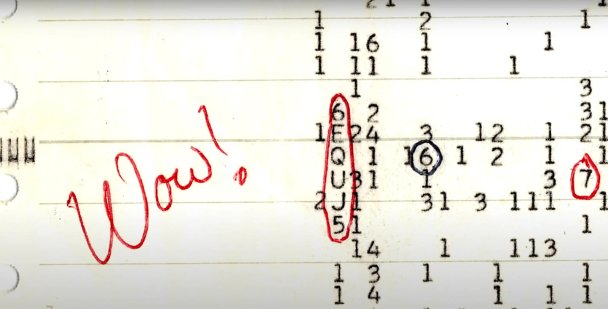 1 2 1
1 16 1 1
1 11 1 1
1 3
6 2 31
1 E24 3 12 1 21
Q 1 16 1 2 1 1
Wow!
U31 1 3 7
2 J1 31 3 111 1
51 1
14 1 113
1 3 1 1 1
1 4 1 1 1 1